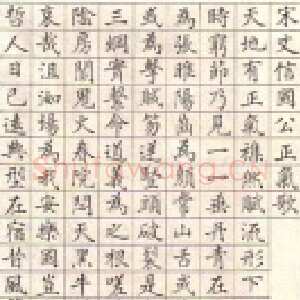 宋文信國公正氣歌
天地有正氣雜然賦流形下
時窮節乃見一一垂丹青在
為張睢陽齒為顏常山舌或
或為擊賊笏逆豎頭破裂是
三綱實繫命道義為之根嗟
陰房闃鬼火春院閟天黑牛
哀哉沮洳場為我安樂國豈
哲人日已遠典型在宿昔風